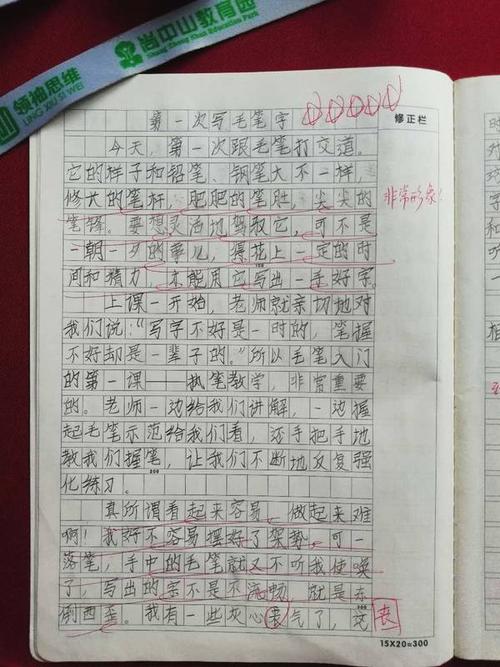 尚中山教育园
Zhong Shan Education Park
领袖思维
LING XIU SI WEI
第一次写毛笔字
修正栏
今天，第一次跟毛笔打交道。
它的样子和铅笔、钢笔大不一样，
修大的笔杆，肥肥的笔肚，尖尖的
非常形象！
笔锋。要想灵活地驾驭它，可不是
一朝一夕的事儿，得花上一定的时
间和精力，才能用它写出一手好字。
上课一开始，老师就亲切地对
我们说：“写字不好是一时的，笔握
不好却是一辈子的。”所以毛笔入门
的第一课——执笔教学，非常重要
的。老师一边给我们讲解，一边握
起毛笔示范给我们看，还手把手地
教我们握笔，让我们不断地反复强
化练习。
200
真所谓看起来容易，做起来难
啊！我好不容易摆好了架势，可一
落笔，手中的毛笔就又不听我使唤
了，写出的字不是不流畅，就是东
倒西歪。我有一些灰心丧气了，这
丧
300
15X20=300